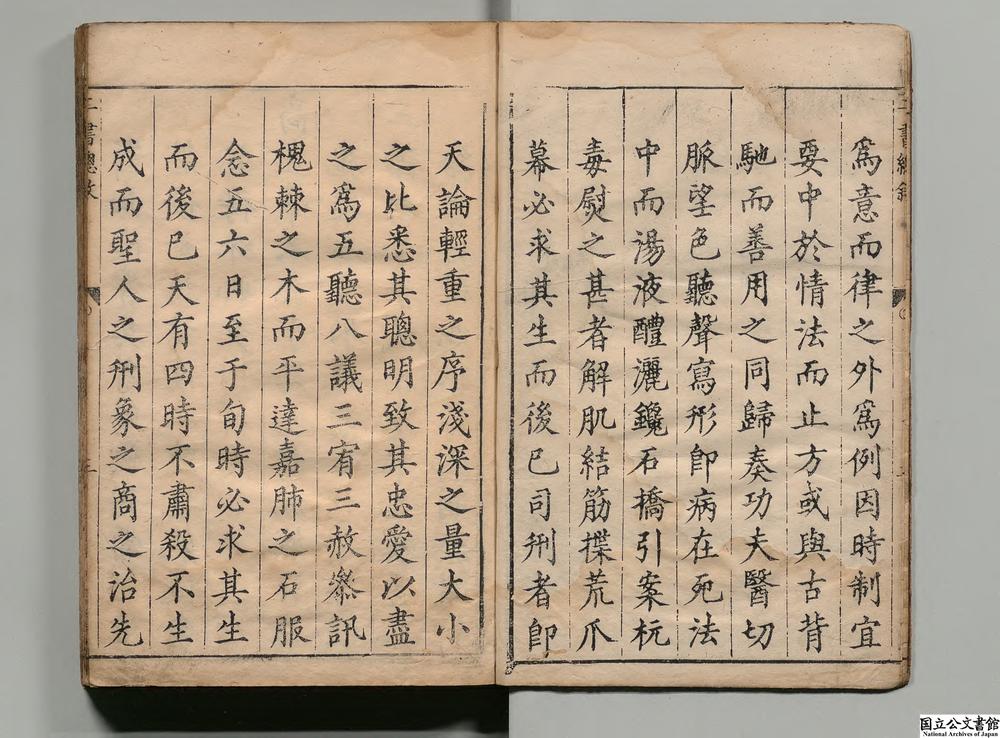 爲意而律之外爲例因時制宜
要中於情法而止方或與古背
馳而善用之同歸奏功夫醫切
脈望色聽聲寫形卽病在死法
中而湯液醴灑鑱石撟引案杬
毒熨之甚者解肌結筋揲荒爪
幕必求其生而後已司刑者卽
天論輕重之序淺深之量大小
之比悉其聰明致其忠愛以盡
之爲五聽八議三宥三赦叅訊
槐棘之木而平達嘉肺之石服
念五六日至于旬時必求其生
而後已天有四時不肅殺不生
成而聖人之刑象之商之治先
二書總敘
国立公文書館
National Archives of Japan